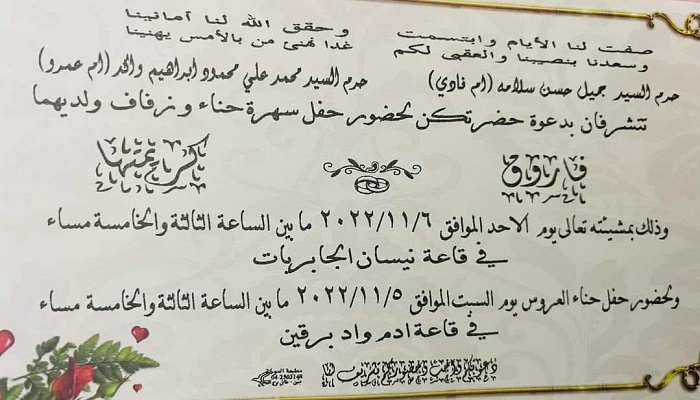 صفت لنا الأيام وابتسمت
وحقق الله لنا أمانينا
وسعدنا بنصيبنا والعقبى لكم
غدا نهنئ من بالأمس يهنينا
حرم السيد جميل حسن سلامه (ام فادي)
حرم السيد محمد علي محمود ابراهيم والحد (ام عمرو)
تتشرفان بدعوة حضرتكن لحضور حفل سهرة حناء وزفاف ولديهما
فاروق
كريمتها
وذلك بمشيئته تعالى يوم الاحد الموافق ٢٠٢٢/١١/٦ ما بين الساعة الثالثة والخامسة مساء
في قاعة نيسان الجابريات
ولحضور حفل حناء العروس يوم السبت الموافق ٢٠٢٢/١١/٥ ما بين الساعة الثالثة والخامسة مساء
في قاعة ادم واد برقين
دعوتكم واجب وحضوركم تشريف لنا